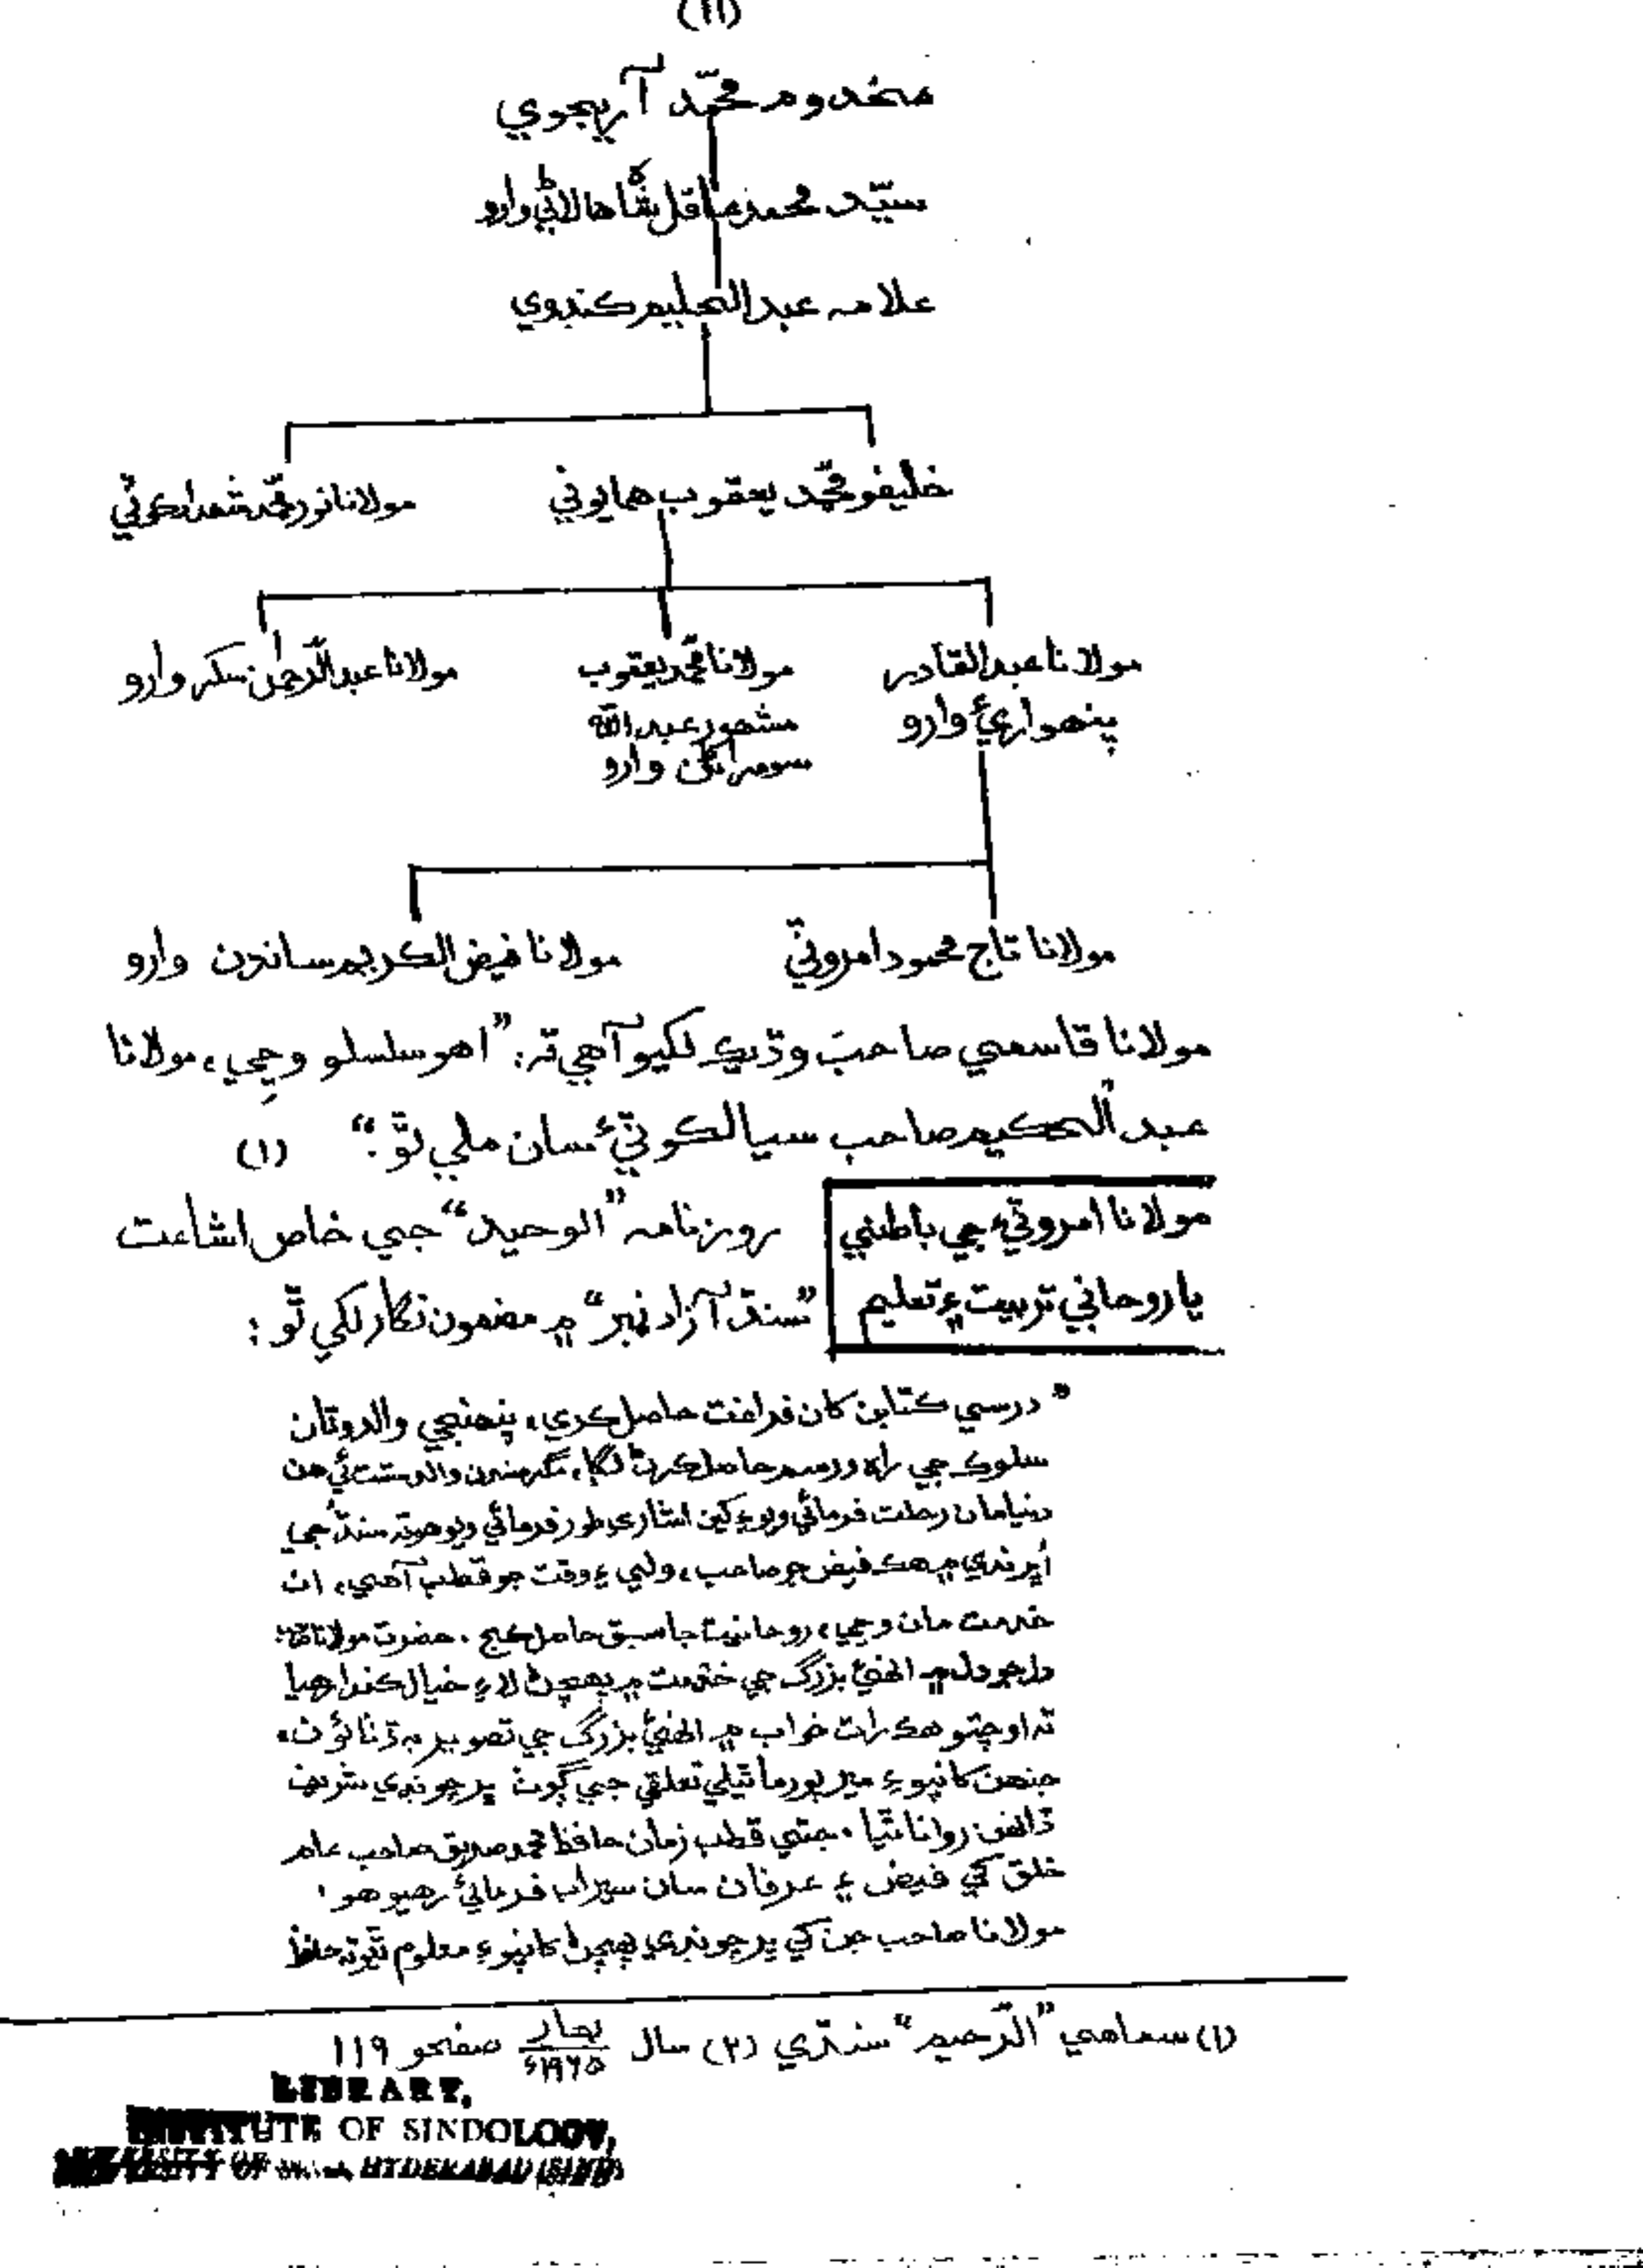 (١١)
مخدوم محمّد آريجوي
سيّد محمد عاقل شاھ ھالاڻي وارو
علامه عبدالحليم ڪنڊوي
خليفو محمّد يعقوب ھمايوني
مولانا نور محمّد شھدادڪوٽي
مولانا عبدالقادر
پنھواريءَ وارو
مولانا محمّد يعقوب
مشھور عبدالله
سومراڻي وارو
مولانا عبدالرّحمٰن سکر وارو
مولانا تاج محمود امروٽي
مولانا فيض الڪريم سانڌن وارو
مولانا قاسمي صاحبَ وڌيڪ لکيو آھي تہ: ”اھو سلسلو وڃي، مولانا
عبدالحڪيم صاحب سيالڪوٽيءَ سان ملي ٿو.“ (١)
مولانا امروٽيءَ جي باطني
يا روحاني تربيت ۽ تعليم
روزنامه ”الوحيد“ جي خاص اشاعت
”سنڌ آزاد نمبر“ ۾ مضمون نگار لکي ٿو:
” درسي ڪتابن کان فراغت حاصل ڪري، پنھنجي والد وٽان
سلوڪ جي راھ ورسم حاصل ڪرڻ لڳا، مگر سندن والد سٿت ئي ھن
دنيا مان رحلت فرمائي ويو ۽ کين اشاري طور فرمائي ويو ھو تہ سنڌ جي
اُڀرندي ۾ ھڪ فيض جو صاحب، ولي ۽ وقت جو قطب آھي، ان
خدمت مان وڃي، روحانيت جا سبق حاصل ڪج. حضرت مولانا
دل جو دل ۾ انھيءَ بزرگ جي خدمت ۾ پھچڻ لاءِ خيال ڪندا رھيا
تہ اوچتو ھڪ رات خواب ۾ انھيءَ بزرگ جي تصوير بہ ڏٺائون،
جنھن کانپوءِ ميرپور ماٿيلي تعلقي جي ڳوٺ ڀرچونڊي شريف
ڏانھن روانا ٿيا. جتي قطب زمان حافظ محمد صديق صاحب عام
خلق کي فيض ۽ عرفان سان سيراب فرمائي رھيو ھو.
مولانا صاحب جن کي ڀرچونڊي پھچڻ کانپوءِ معلوم ٿيو تہ حافظ
(١) سھ ماھي ”الرّحيم“ سنڌي (٢) سال بھار ١٩٦٥ع صفحو ١١٩
LIBRARY,
INSTITUTE OF SINDOLOGY,